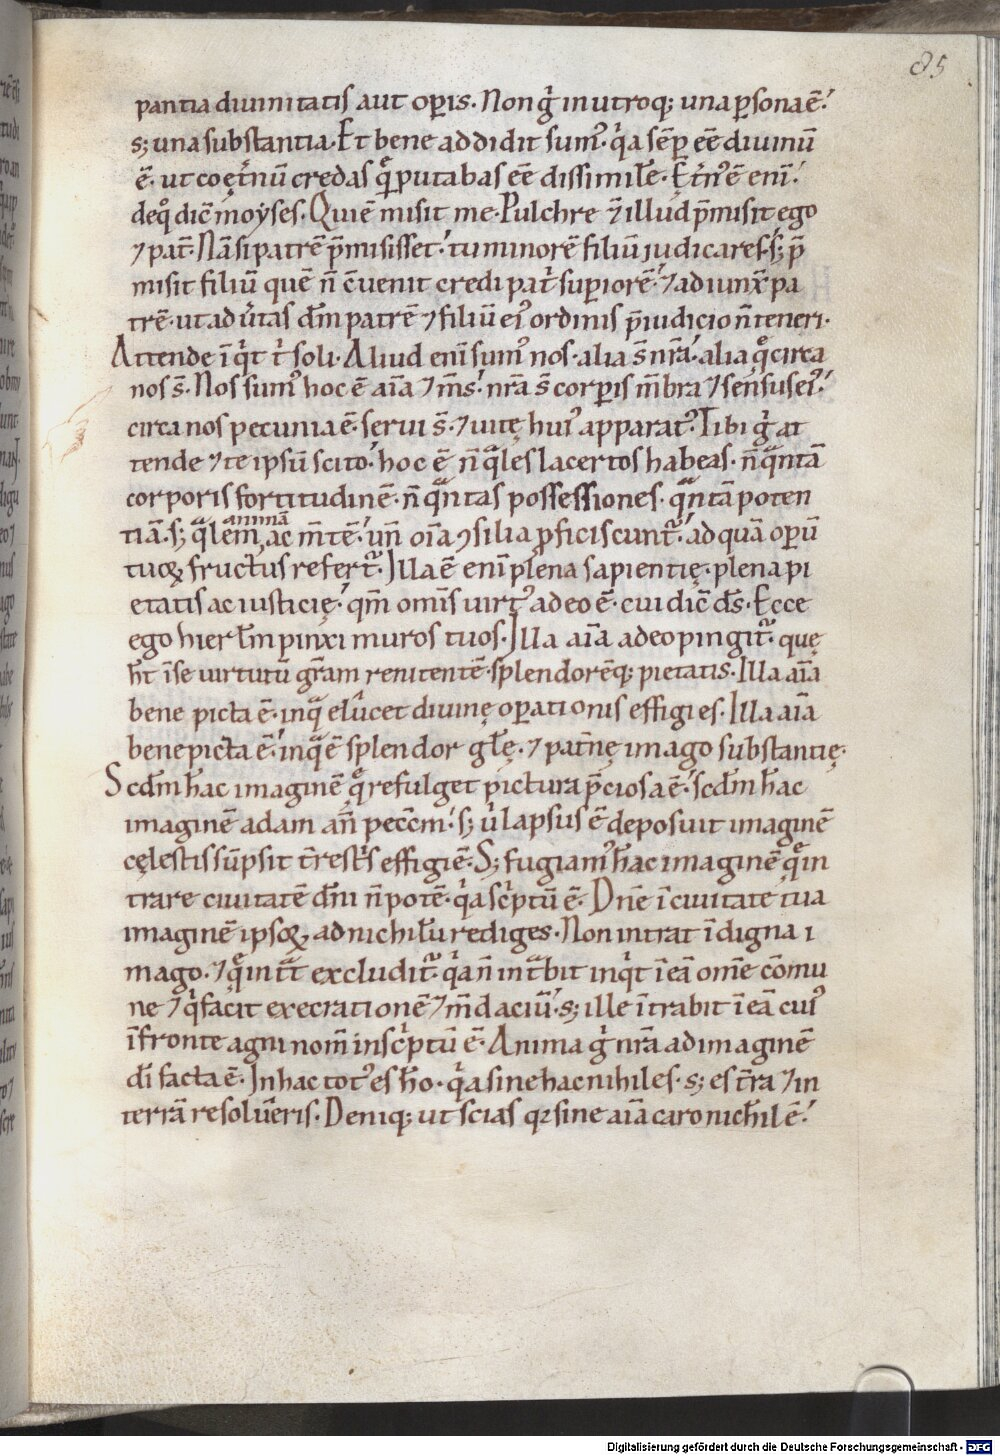 85
pantia diuinitatis aut opis. Non g̊ in utroq; una psona ē.
s; una substantia. Et bene addidit sum᷒. q̓a sēp eē diuinū
ē. ut coęt̓nū credas qͤ putabas eē dissimilē. Ęt̓n᷒ ē enī.
de q̊ dic̄ moyses. Qui ē misit me. Pulchre ⁊ illud p̄misit ego
⁊ pat̓. Nā si patrē p̄misisset. tu minorē filiū iudicares. s; p̄
misit filiū quē n̄ c̄uenit credi pat̓ superiorē. ⁊ adiunx̄ pa
trē. ut aduertas dm̄ patrē ⁊ filiū ei᷒ ordinis p̄iudicio n̄ teneri.
Attende īq̓t t̓ soli. Aliud enī sum᷒ nos. alia s̄ nrā. alia qͤ circa
nos s̄. Nos sum᷒ hoc ē aīa ⁊ m̄s. nrā s̄ corpis mēbra ⁊ sensus ei᷒.
circa nos pecunia ē. serui s̄. ⁊ uitę hui᷒ apparat᷒. Tibi g̊ at
tende ⁊ te ipsū scito. hoc ē n̄ qͣles lacertos habeas. n̄ qͣntā
corporis fortitudinē. n̄ qͣntas possessiones. qͣntā poten
tiā. s; qͣlem animā ac m̄tē. un̄ oīa ꝯsilia pficiscunt᷑. ad quā operū
tuoꝝ fructus refert᷑. Illa ē enī plena sapientię. plena pi
etatis ac iusticię. qm̄ omīs uirt᷒ a deo ē. cui dic̄ ds̄. Ecce
ego hierłm pinxi muros tuos. Illa aīa a deo pingit᷑. quę
ht̄ ī se uirtutū grā̄m renitentē. splendorēq; pietatis. Illa aīa
bene picta ē. in qͣ elucet diuinę operationis effigies. Illa aīa
bene picta ē. in qͣ ē splendor głę. ⁊ pat̓nę imago substantię.
Scdm̄ hac imaginē qͤ refulget pictura p̄ciosa ē. scdm̄ hac
imaginē adam an̄ pecc̄m. s; u̓ lapsus ē deposuit imaginē
cęlestis sūpsit t̓rest̓s effigiē. S; fugiam᷒ hac imaginē qͤ in
trare ciuitatē dn̄i n̄ potē. q̓a sc̓ptū ē. Dn̄e ī ciuitate tua
imaginē ipsoꝝ ad nichilū rediges. Non intrat īdigna i
mago. ⁊ qͤ int̄t excludit᷑. q̓a n̄ int̄bit inq̓t ī eā om̄e cōmu
ne ⁊ q̓ facit execrationē ⁊ m̄daciū. s; ille ītrabit ī eā cui᷒
ī fronte agni nom̄ insc̓ptū ē. Anima g̊ nrā ad imaginē
dī facta ē. In hac tot᷒ es h̄o. q̓a sine hac nihil es. s; es t̄ra ⁊ in
terrā resolueris. Deniq; ut scias qꝛ sine aīa caro nichil ē.
Digitalisierung gefördert durch die Deutsche Forschungsgemeinschaft - DFG